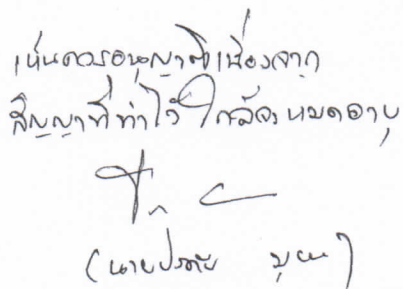 เห็นควรอนุญาตเนื่องจาก
สัญญาที่ทำไว้ใกล้จะหมดอายุ
(นาย